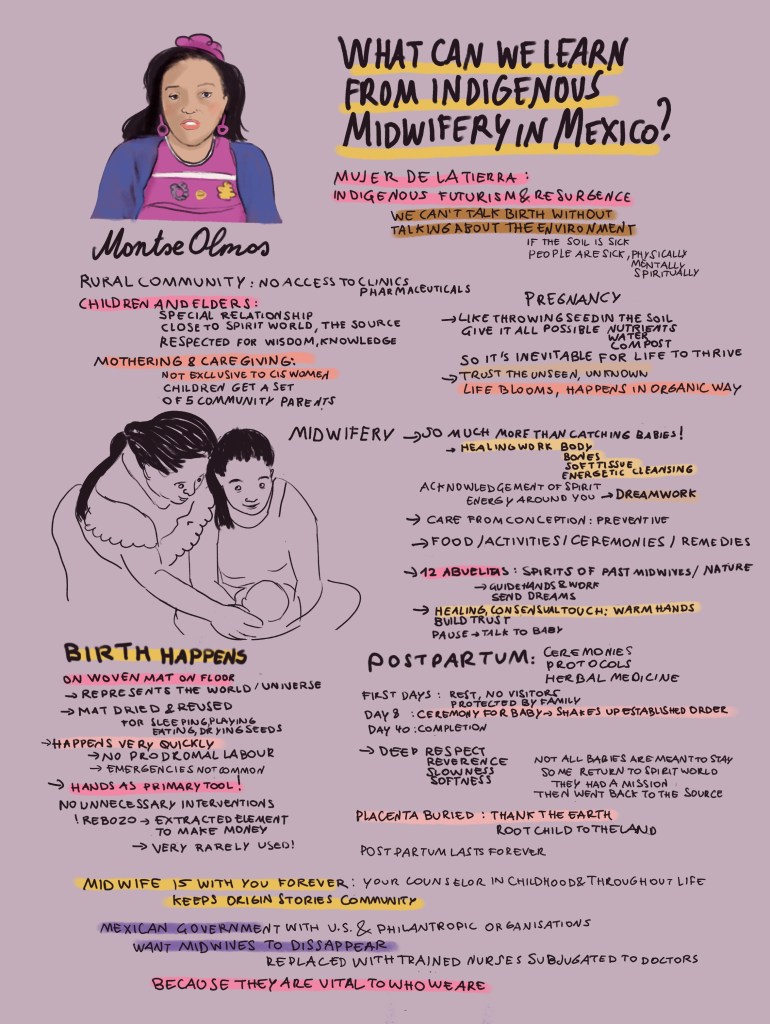 WHAT CAN WE LEARN
FROM INDIGENOUS
MIDWIFERY IN MEXICO?
MUJER DE LA TIERRA:
INDIGENOUS FUTURISM & RESURGENCE
WE CAN'T TALK BIRTH WITHOUT
TALKING ABOUT THE ENVIRONMENT
IF THE SOIL IS SICK
PEOPLE ARE SICK, PHYSICALLY
MENTALLY
SPIRITUALLY
Montse Olmos
RURAL COMMUNITY: NO ACCESS TO CLINICS
PHARMACEUTICALS
CHILDREN AND ELDERS:
SPECIAL RELATIONSHIP
CLOSE TO SPIRIT WORLD, THE SOURCE
RESPECTED FOR WISDOM, KNOWLEDGE
MOTHERING & CAREGIVING:
NOT EXCLUSIVE TO CIS WOMEN
CHILDREN GET A SET
OF 5 COMMUNITY PARENTS
PREGNANCY
→ LIKE THROWING SEED IN THE SOIL
GIVE IT ALL POSSIBLE NUTRIENTS
WATER
COMPOST
SO IT'S INEVITABLE FOR LIFE TO THRIVE
→ TRUST THE UNSEEN, UNKNOWN
LIFE BLOOMS, HAPPENS IN ORGANIC WAY
MIDWIFERY → SO MUCH MORE THAN CATCHING BABIES!
→ HEALING WORK BODY
BONES
SOFT TISSUE
ENERGETIC CLEANSING
ACKNOWLEDGEMENT OF SPIRIT
ENERGY AROUND YOU → DREAMWORK
→ CARE FROM CONCEPTION: PREVENTIVE
→ FOOD / ACTIVITIES / CEREMONIES / REMEDIES
→ 12 ABUELITAS: SPIRITS OF PAST MIDWIVES / NATURE
→ GUIDE HANDS & WORK
SEND DREAMS
→ HEALING, CONSENSUAL TOUCH: WARM HANDS
BUILD TRUST
PAUSE → TALK TO BABY
BIRTH HAPPENS
ON WOVEN MAT ON FLOOR
→ REPRESENTS THE WORLD / UNIVERSE
→ MAT DRIED & REUSED
FOR SLEEPING, PLAYING
EATING, DRYING SEEDS
→ HAPPENS VERY QUICKLY
→ NO PRODROMAL LABOUR
→ EMERGENCIES NOT COMMON
→ HANDS AS PRIMARY TOOL!
NO UNNECESSARY INTERVENTIONS
! REBOZO → EXTRACTED ELEMENT
TO MAKE MONEY
→ VERY RARELY USED!
POSTPARTUM: CEREMONIES
PROTOCOLS
HERBAL MEDICINE
FIRST DAYS: REST, NO VISITORS
PROTECTED BY FAMILY
DAY 8: CEREMONY FOR BABY → SHAKES UP ESTABLISHED ORDER
DAY 40: COMPLETION
→ DEEP RESPECT
REVERENCE
SLOWNESS
SOFTNESS
NOT ALL BABIES ARE MEANT TO STAY
SOME RETURN TO SPIRIT WORLD
THEY HAD A MISSION
THEN WENT BACK TO THE SOURCE
PLACENTA BURIED: THANK THE EARTH
ROOT CHILD TO THE LAND
POSTPARTUM LASTS FOREVER
MIDWIFE IS WITH YOU FOREVER: YOUR COUNSELOR IN CHILDHOOD & THROUGHOUT LIFE
KEEPS ORIGIN STORIES COMMUNITY
MEXICAN GOVERNMENT WITH U.S. & PHILANTROPIC ORGANISATIONS
WANT MIDWIVES TO DISSAPPEAR
REPLACED WITH TRAINED NURSES SUBJUGATED TO DOCTORS
BECAUSE THEY ARE VITAL TO WHO WE ARE